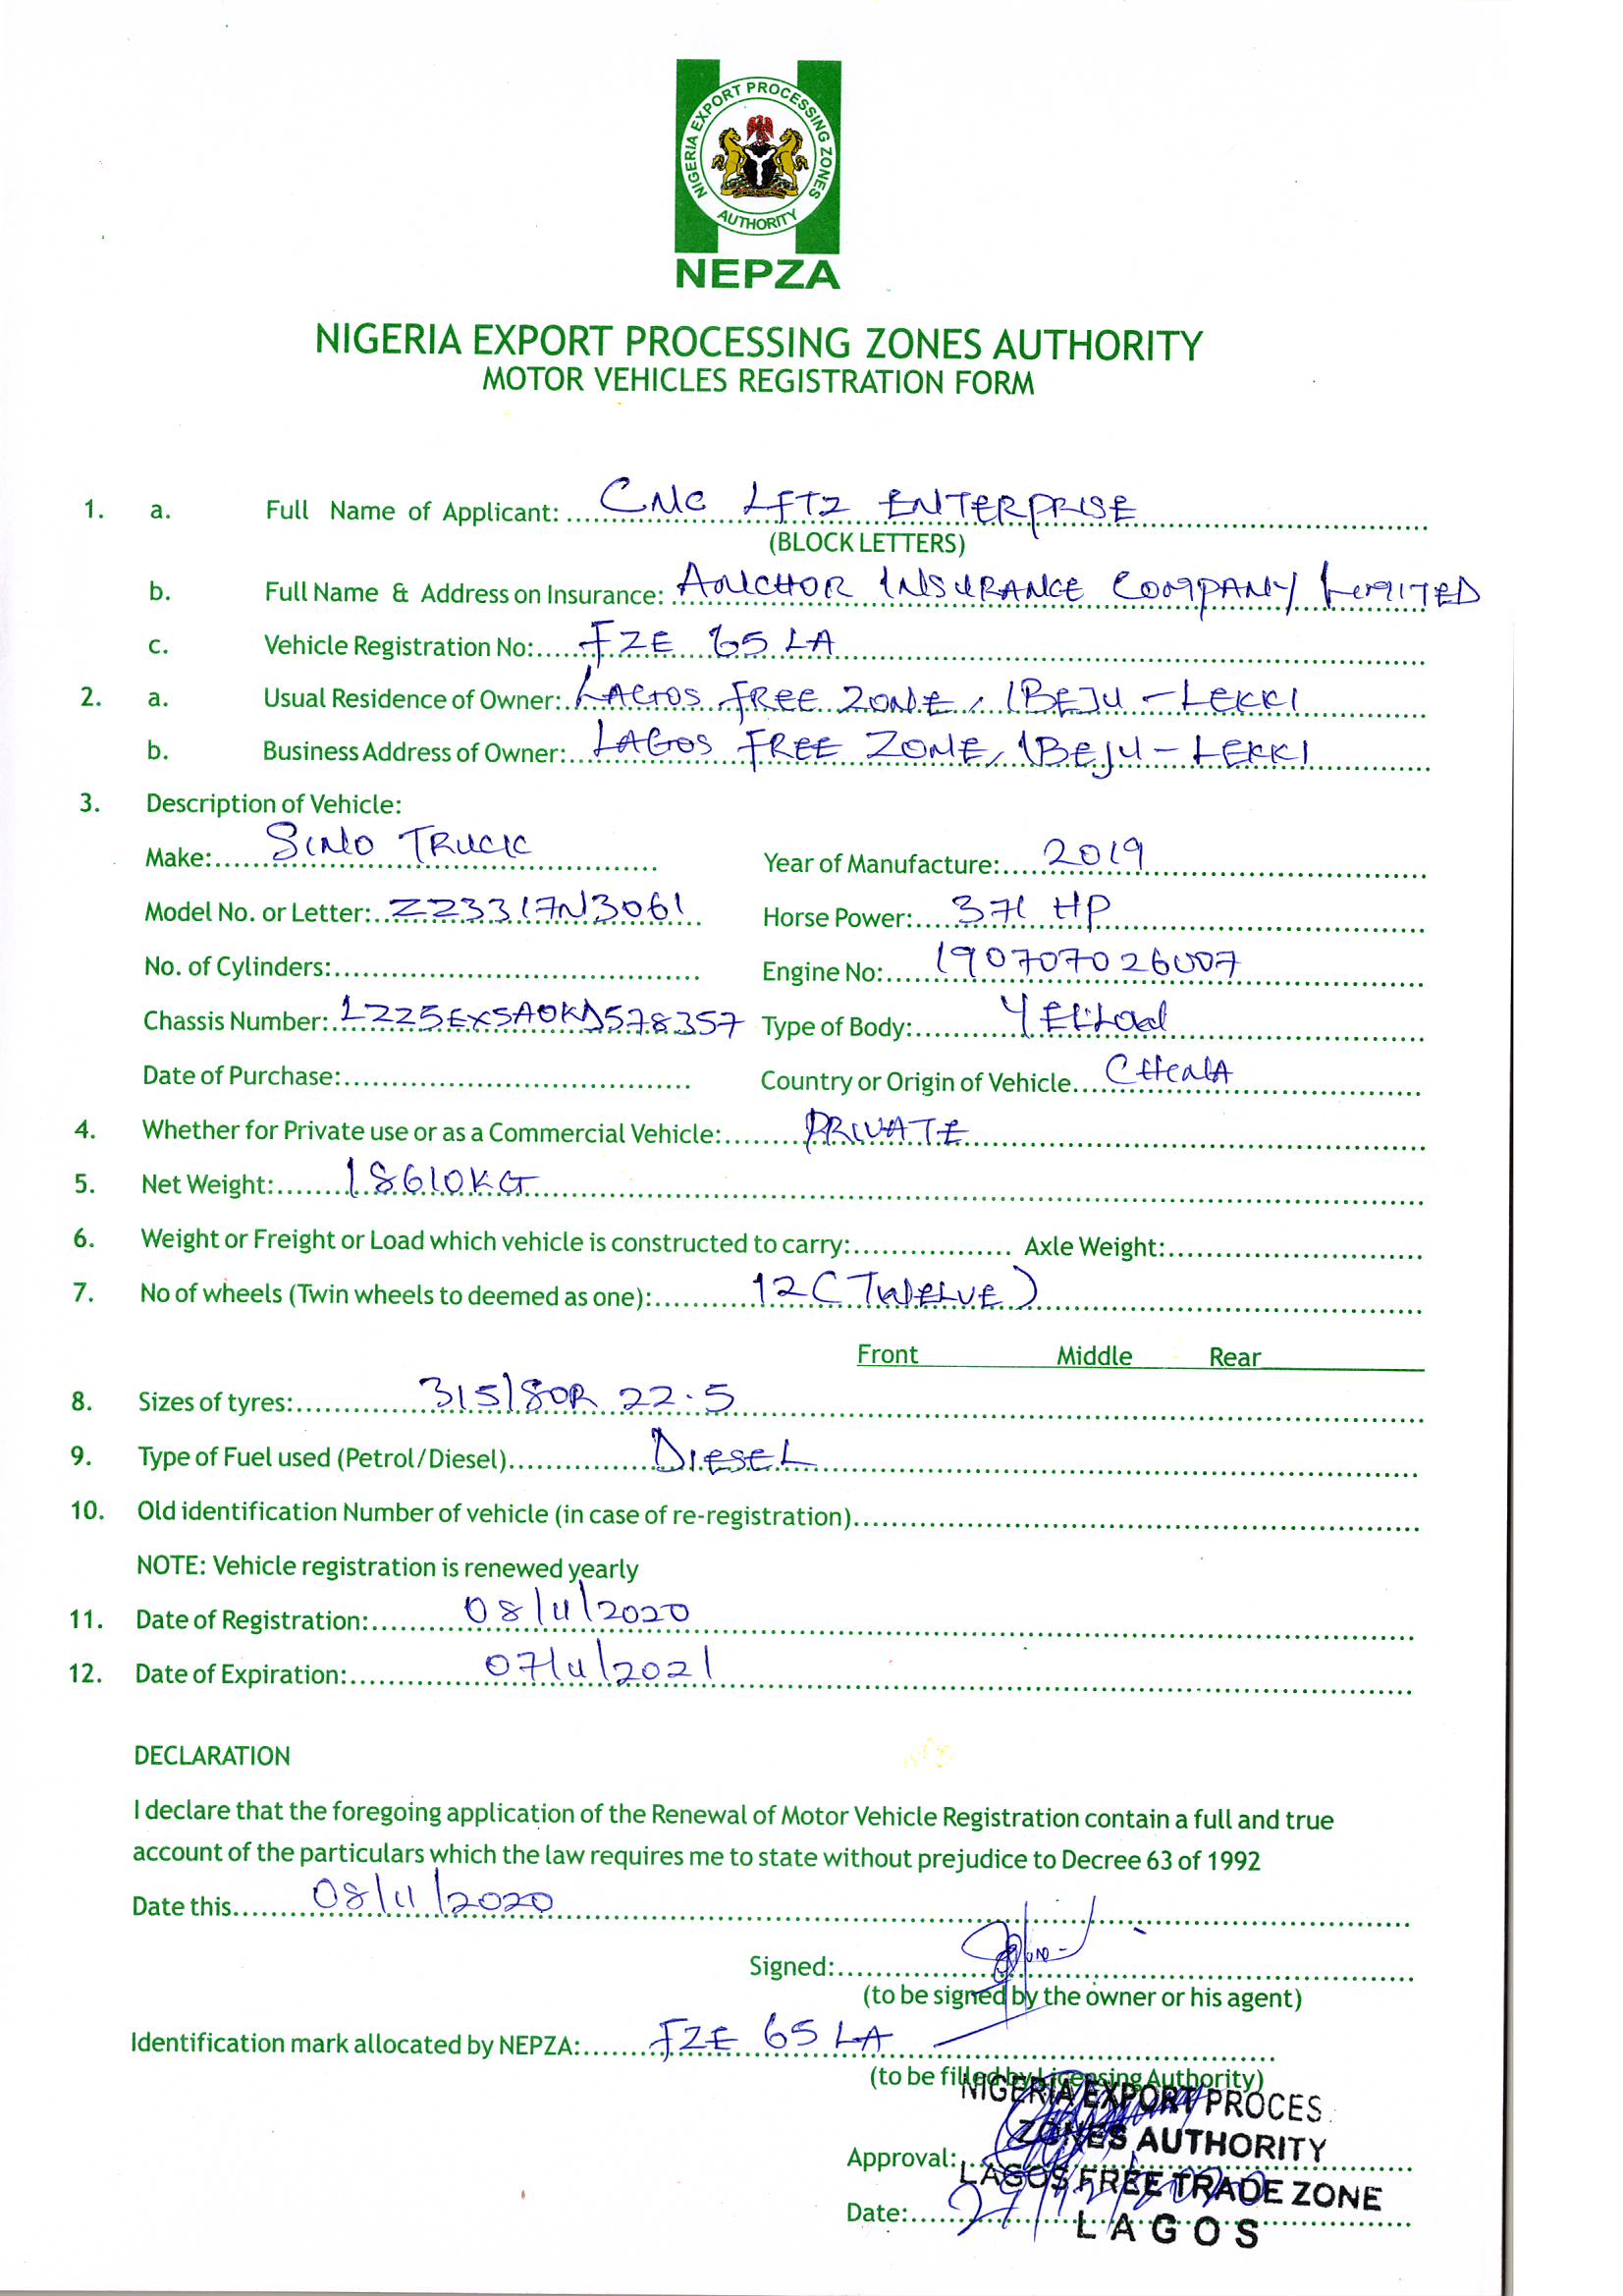 NIGERIA EXPORT PROCESSING ZONES
AUTHORITY
NEPZA
NIGERIA EXPORT PROCESSING ZONES AUTHORITY
MOTOR VEHICLES REGISTRATION FORM
1. a. Full Name of Applicant: CNC LFTZ ENTERPRISE
(BLOCK LETTERS)
b. Full Name & Address on Insurance: ANCHOR INSURANCE COMPANY LIMITED
c. Vehicle Registration No: FZE 65 LA
2. a. Usual Residence of Owner: LAGOS FREE ZONE, IBEJU - LEKKI
b. Business Address of Owner: LAGOS FREE ZONE, IBEJU - LEKKI
3. Description of Vehicle:
Make: SINO TRUCK Year of Manufacture: 2019
Model No. or Letter: ZZ3317N3061 Horse Power: 371 HP
No. of Cylinders: Engine No: 190707026007
Chassis Number: LZZ5EXSA0KD578357 Type of Body:
Date of Purchase: Country or Origin of Vehicle CHINA
4. Whether for Private use or as a Commercial Vehicle: PRIVATE
5. Net Weight: 18610KG
6. Weight or Freight or Load which vehicle is constructed to carry: Axle Weight:
7. No of wheels (Twin wheels to deemed as one): 12 (TWELVE)
Front Middle Rear
8. Sizes of tyres: 315/80R 22.5
9. Type of Fuel used (Petrol/Diesel) DIESEL
10. Old identification Number of vehicle (in case of re-registration)
NOTE: Vehicle registration is renewed yearly
11. Date of Registration: 08/11/2020
12. Date of Expiration: 07/11/2021
DECLARATION
I declare that the foregoing application of the Renewal of Motor Vehicle Registration contain a full and true
account of the particulars which the law requires me to state without prejudice to Decree 63 of 1992
Date this 08/11/2020
Signed:
(to be signed by the owner or his agent)
Identification mark allocated by NEPZA: FZE 65 LA
(to be filled by Licensing Authority)
NIGERIA EXPORT PROCES
ZONES AUTHORITY
Approval:
LAGOS FREE TRADE ZONE
Date: 27/12/2020
LAGOS